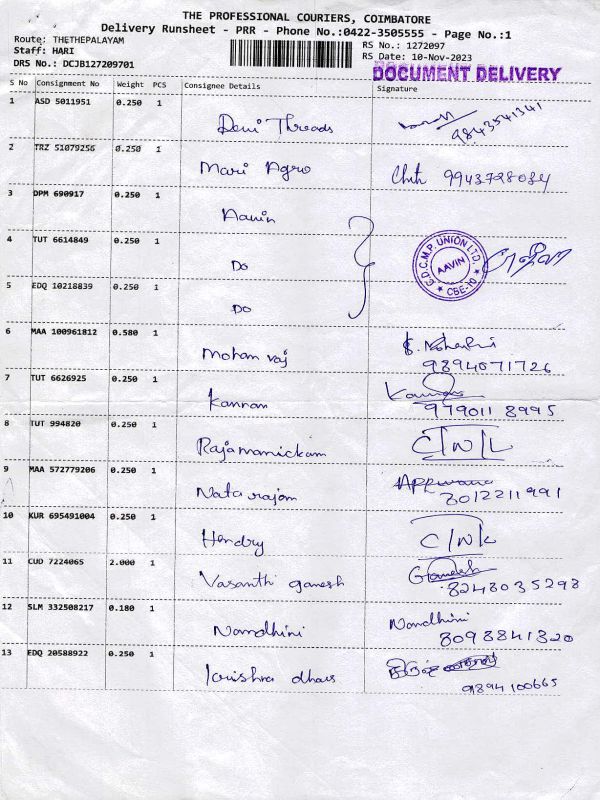 THE PROFESSIONAL COURIERS, COIMBATORE
Delivery Runsheet - PRR - Phone No.:0422-3505555 - Page No.:1
Route: THETHEPALAYAM
Staff: HARI
DRS No.: DCJB127209701
RS No.: 1272097
RS Date: 10-Nov-2023
DOCUMENT DELIVERY
S No Consignment No Weight PCS Consignee Details Signature
1 ASD 5011951 0.250 1 Devi Threads 9843541341
2 TRZ 51079256 0.250 1 Mari Agro 9943728084
3 DPM 690917 0.250 1 Aavin
4 TUT 6614849 0.250 1 Do
C.D.C.M.P. UNION LTD.
AAVIN
CBE-10
5 EDQ 10218839 0.250 1 Do
6 MAA 100961812 0.580 1 Mohan raj
9894071726
7 TUT 6626925 0.250 1 Kannan
979011 8995
8 TUT 994820 0.250 1 Rajamanickam C/N/L
9 MAA 572779206 0.250 1 Natarajan
8012211991
10 KUR 695491004 0.250 1 Hendry C/N/L
11 CUD 7224065 2.000 1 Vasanthi ganesh Ganesh
8248035298
12 SLM 332508217 0.180 1 Nandhini Nandhini
8098841320
13 EDQ 20588922 0.250 1
9894100665